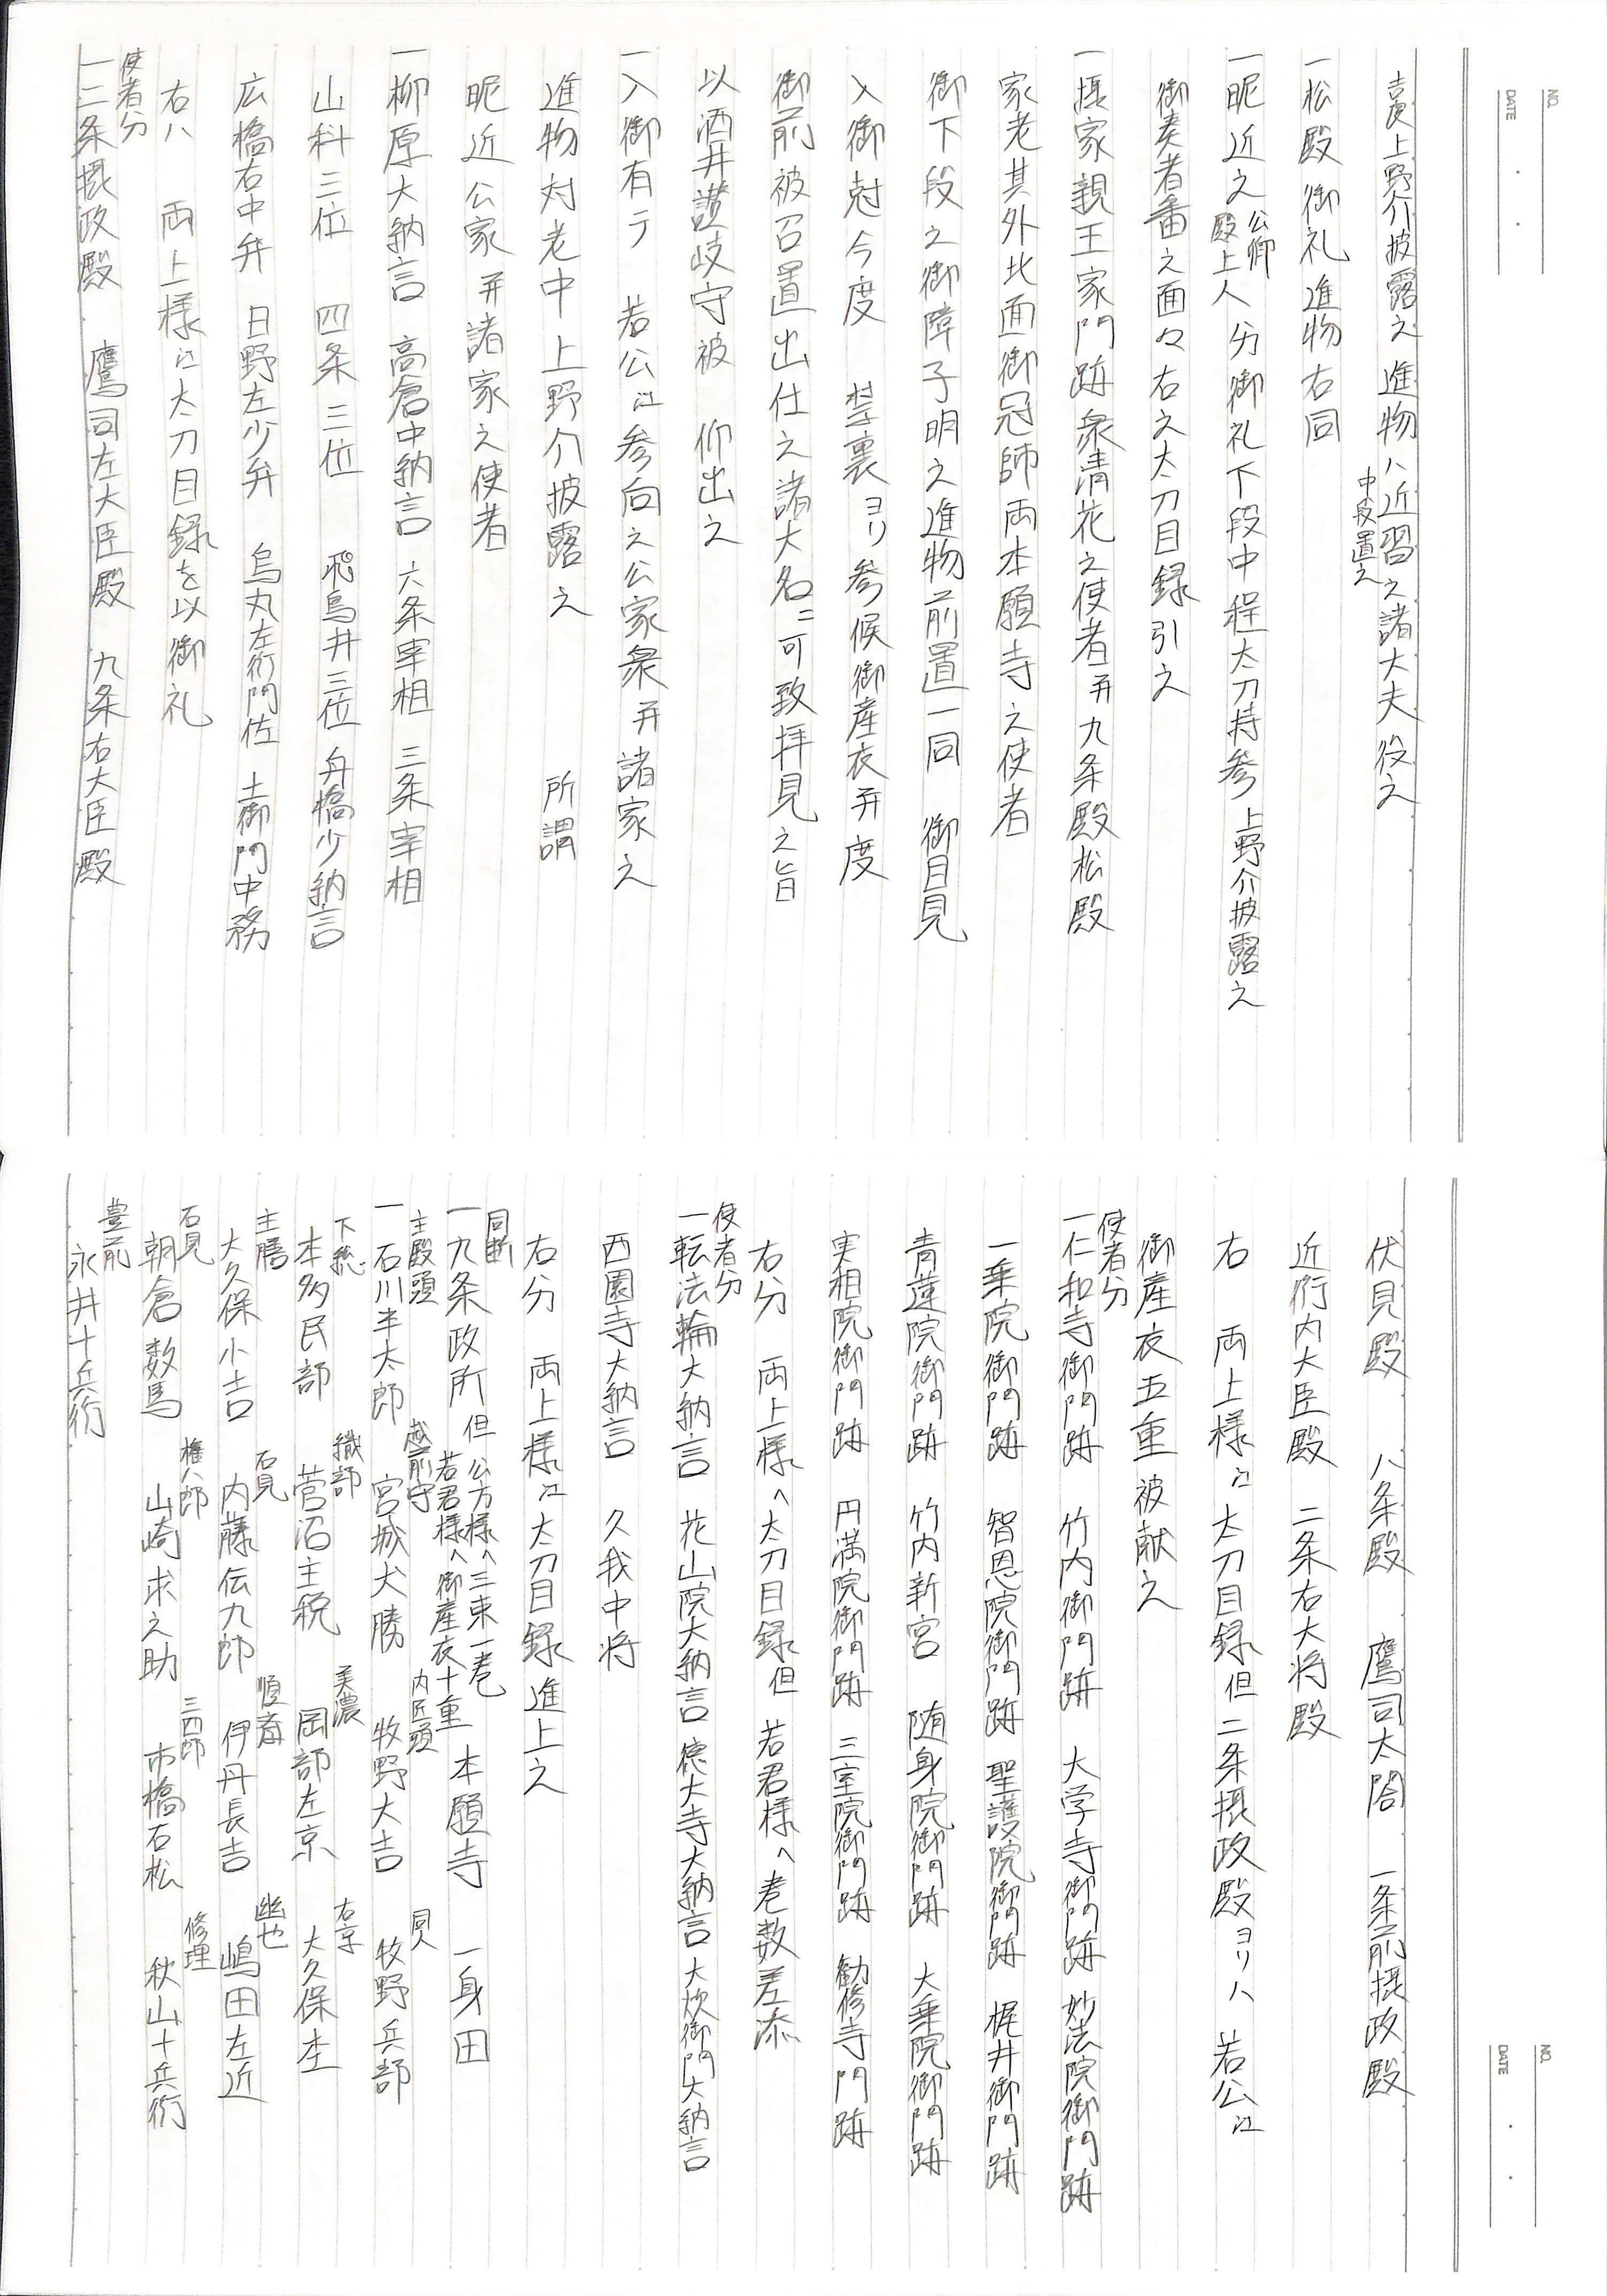 NO.
DATE
吉良上野介披露之 進物ハ近習之諸大夫役之
中段置之
一松殿御礼進物右同
一昵近之公卿殿上人 分御礼下段中程太刀持参 上野介披露之
御奏者番之面々右之太刀目録引之
一摂家親王家門跡衆清花之使者并九条殿松殿
家老其外北面御冠師両本願寺之使者
御下段之御障子明之進物前置一同 御目見
入御尅今度 禁裏ヨリ参候御産衣并度
御前被召置出仕之諸大名ニ可致拝見之旨
以酒井讃岐守被 仰出之
一入御有テ 若公江参向之公家衆并諸家之
進物対老中上野介披露之 所謂
昵近公家并諸家之使者
一柳原大納言 高倉中納言 六条宰相 三条宰相
山科三位 四条三位 飛鳥井三位 舟橋少納言
広橋右中弁 日野左少弁 烏丸左衛門佐 土御門中務
右ハ 両上様江太刀目録を以御礼
使者分
一二条摂政殿 鷹司左大臣殿 九条右大臣殿
NO.
DATE
伏見殿 八条殿 鷹司太閤 一条前摂政殿
近衛内大臣殿 二条右大将殿
右 両上様江太刀目録但二条摂政殿ヨリハ 若公江
御産衣五重被献之
使者分
一仁和寺御門跡 竹内御門跡 大学寺御門跡 妙法院御門跡
一乗院御門跡 智恩院御門跡 聖護院御門跡 梶井御門跡
青蓮院御門跡 竹内新宮 随身院御門跡 大乗院御門跡
実相院御門跡 円満院御門跡 三室院御門跡 勧修寺門跡
右分 両上様へ太刀目録但 若君様へ巻数差添
使者分
一転法輪大納言 花山院大納言 徳大寺大納言 大炊御門大納言
西園寺大納言 久我中将
右分 両上様江太刀目録進上之
同断
一九条政所但 公方様へ三束一巻 若君様へ御産衣十重 本願寺 一身田
主殿頭 越前守 内匠頭 同人
一石川半太郎 宮城犬勝 牧野大吉 牧野兵部
下総 織部 美濃 右京
本多民部 菅沼主税 岡部左京 大久保杢
主膳 石見 順斎 幽也
大久保小吉 内藤伝九郎 伊丹長吉 嶋田左近
石見 権八郎 三四郎 修理
朝倉数馬 山崎求之助 市橋石松 秋山十兵衛
豊前
永井十兵衛